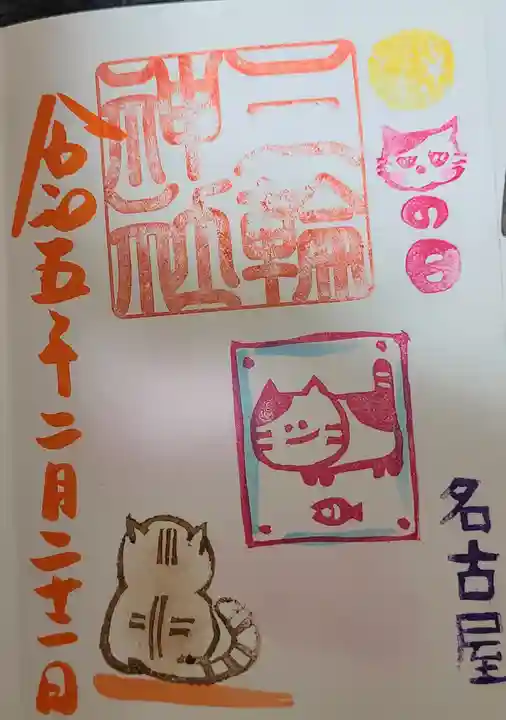 の日
名古屋
三輪
神社
令和五年二月二十一日